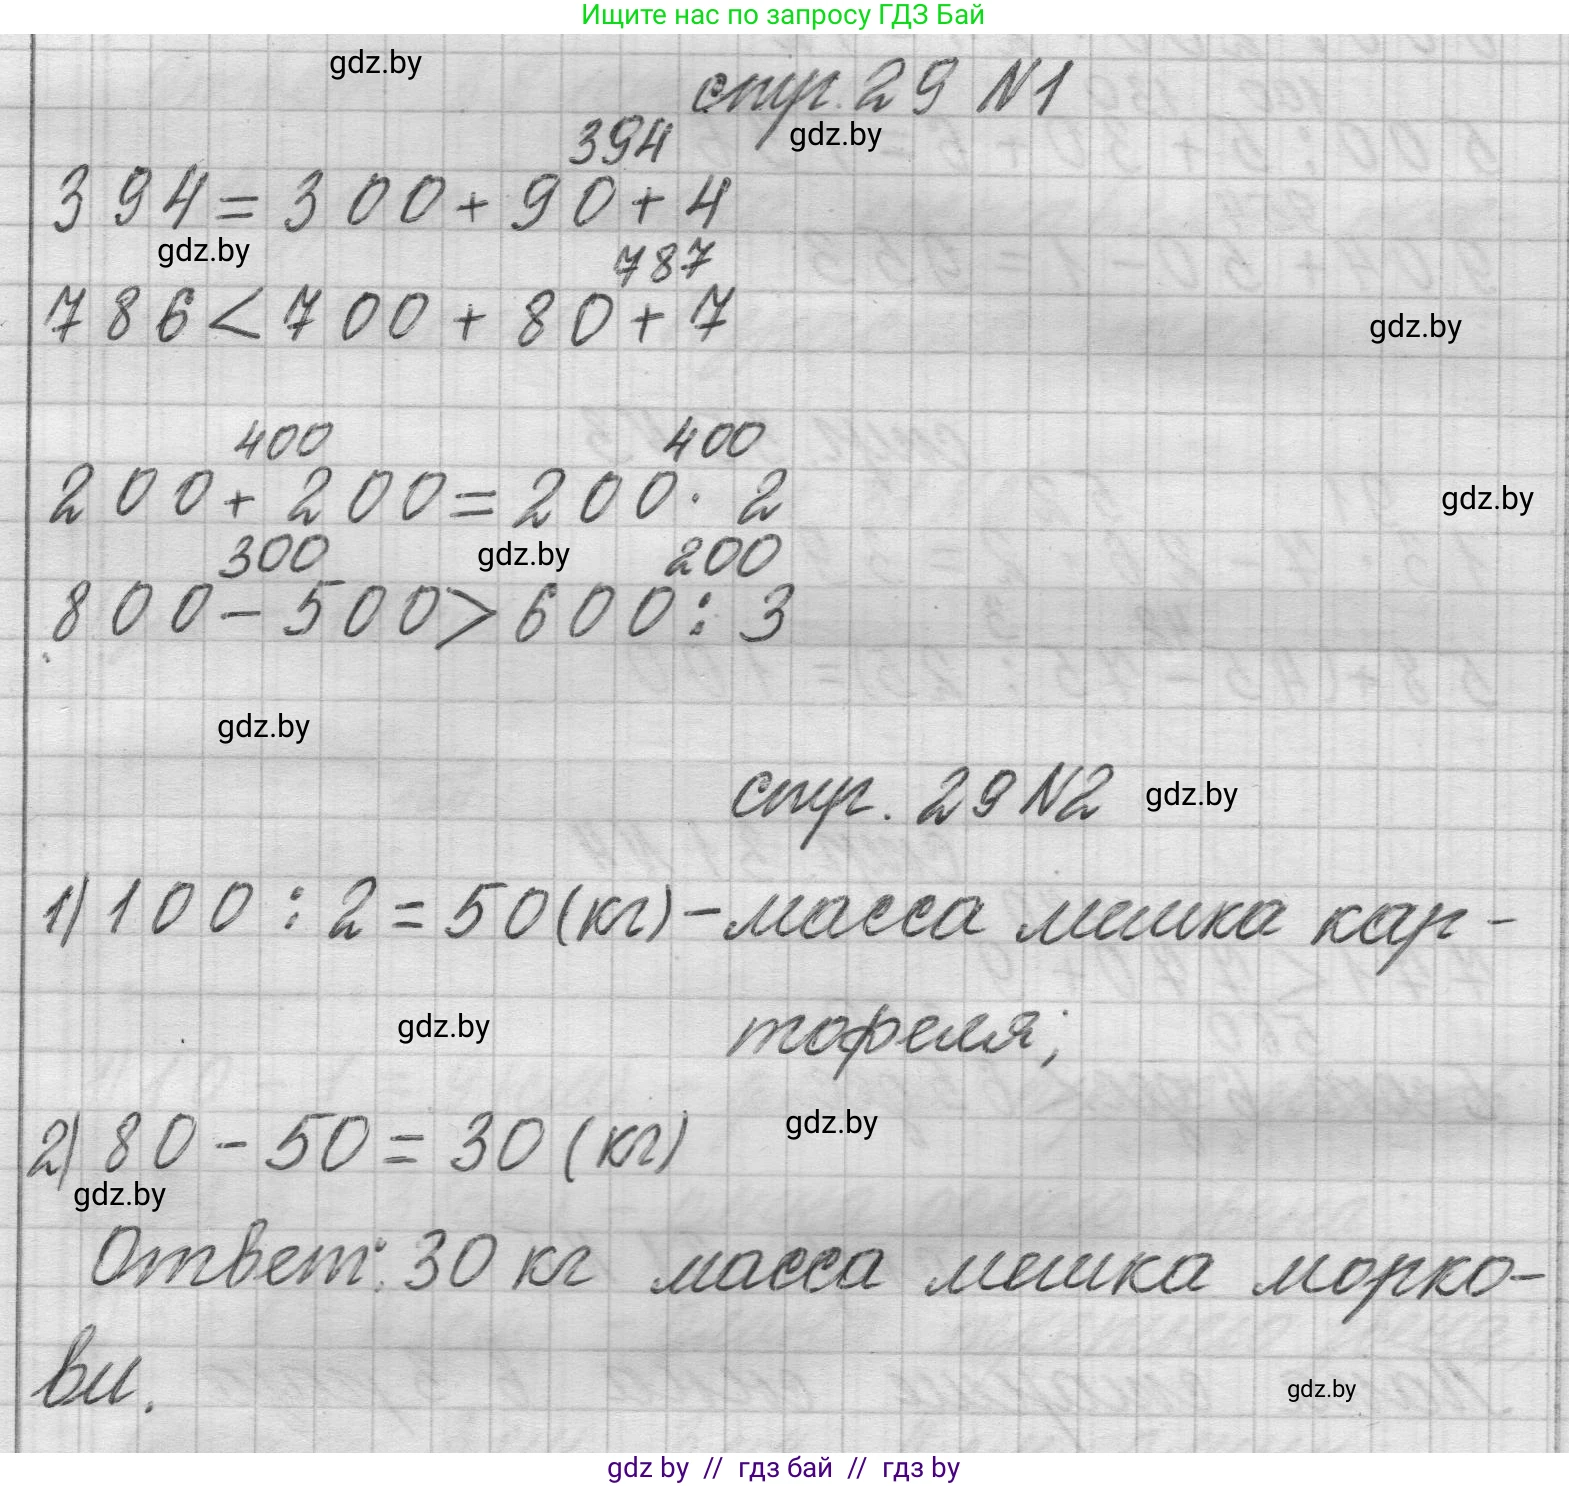 Ищите нас по запросу ГДЗ Бай
gdz.by
стр. 29 N1
gdz.by
394
394=300+90+4
gdz.by
787
786<700+80+7
gdz.by
400 400
200+200=200·2
gdz.by
300 gdz.by 200
800-500>600:3
gdz.by
стр. 29 N2 gdz.by
1) 100:2=50(кг)-масса мешка кар-
gdz.by
тофеля;
gdz.by
2) 80-50=30(кг)
gdz.by
Ответ: 30 кг масса мешка морко-
ви.
gdz.by
gdz by // гдз бай // гдз by